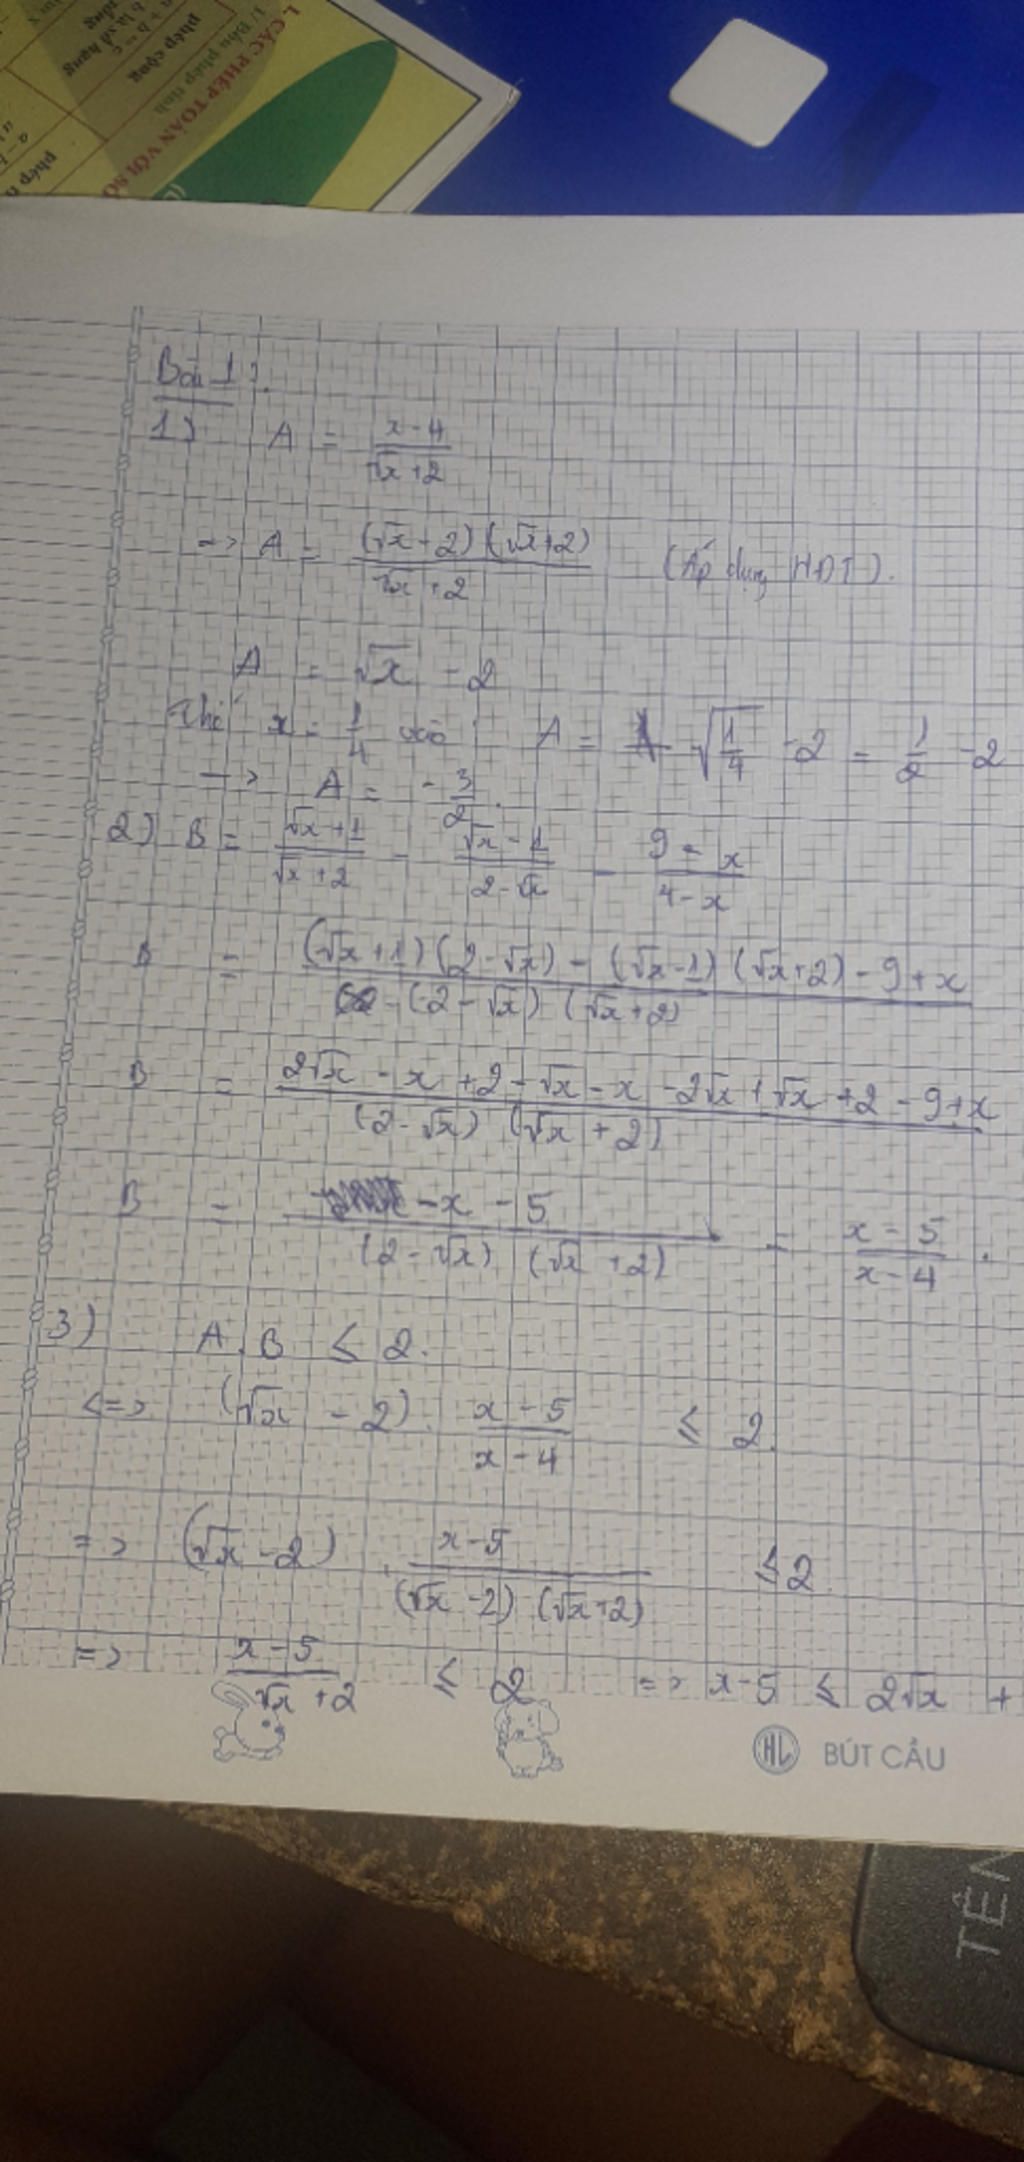 1. CÁC PHÉP TOÁN VỚI SỐ
phép cộng
a + b = c
Bài 1:
1) A = (x-4)/(√x+2)
=> A = (√x-2)(√x+2)/(√x+2) (Áp dụng HĐT).
A = √x - 2
Thế x = 1/4 vào A = √(1/4) - 2 = 1/2 - 2
-> A = -3/2.
2) B = (√x+1)/(√x+2) - (√x-1)/(2-√x) - (9-x)/(4-x)
B = ((√x+1)(2-√x) - (√x-1)(√x+2) - 9+x)/((2-√x)(√x+2))
B = (2√x - x + 2 - √x - x - 2√x + √x + 2 - 9 + x)/((2-√x)(√x+2))
B = (-x - 5)/((2-√x)(√x+2)) = (x-5)/(x-4).
3) A.B ≤ 2.
<=> (√x - 2). (x-5)/(x-4) ≤ 2.
=> (√x-2). (x-5)/((√x-2)(√x+2)) ≤ 2
=> (x-5)/(√x+2) ≤ 2 => x-5 ≤ 2√x +
HL BÚT CẦU
TÊN